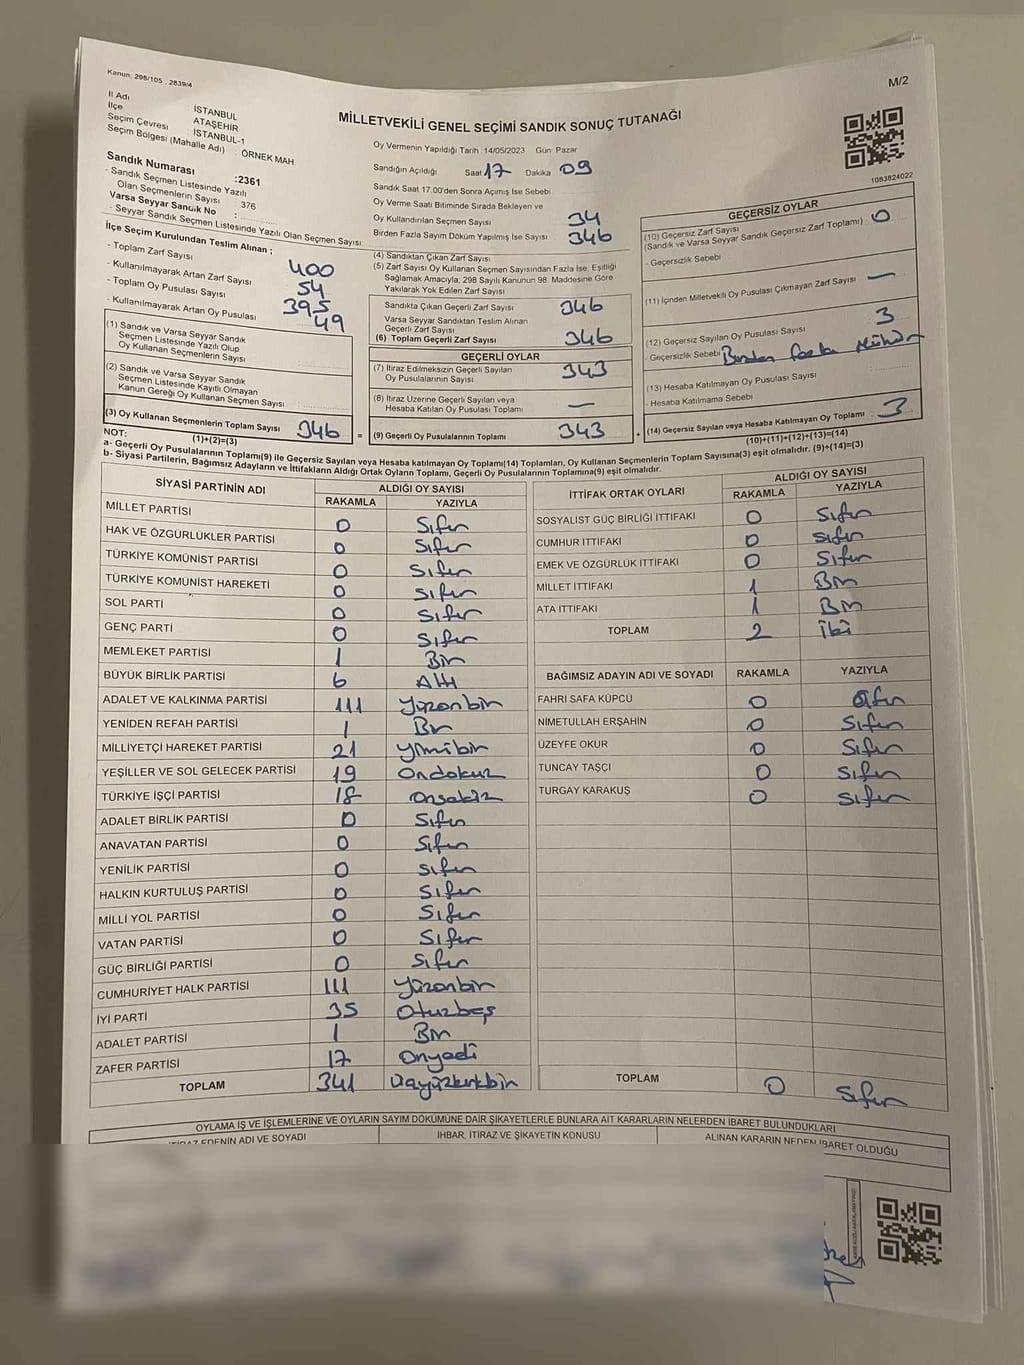 Kanun: 298/105 , 2839/4
M/2
İl Adı İSTANBUL
İlçe ATAŞEHİR
Seçim Çevresi : İSTANBUL-1
Seçim Bölgesi (Mahalle Adı) : ÖRNEK MAH
Sandık Numarası :2361
- Sandık Seçmen Listesinde Yazılı
Olan Seçmenlerin Sayısı 376
Varsa Seyyar Sandık No :
- Seyyar Sandık Seçmen Listesinde Yazılı Olan Seçmen Sayısı:
İlçe Seçim Kurulundan Teslim Alınan ;
- Toplam Zarf Sayısı 400
- Kullanılmayarak Artan Zarf Sayısı 54
- Toplam Oy Pusulası Sayısı 395
- Kullanılmayarak Artan Oy Pusulası 49
(1) Sandık ve Varsa Seyyar Sandık
Seçmen Listesinde Yazılı Olup
Oy Kullanan Seçmenlerin Sayısı
(2) Sandık ve Varsa Seyyar Sandık
Seçmen Listesinde Kayıtlı Olmayan
Kanun Gereği Oy Kullanan Seçmen Sayısı
(3) Oy Kullanan Seçmenlerin Toplam Sayısı 346 =
(1)+(2)=(3)
MİLLETVEKİLİ GENEL SEÇİMİ SANDIK SONUÇ TUTANAĞI
Oy Vermenin Yapıldığı Tarih :14/05/2023 Gün: Pazar
Sandığın Açıldığı Saat 17 Dakika 09
Sandık Saat 17:00'den Sonra Açımış İse Sebebi
Oy Verme Saati Bitiminde Sırada Bekleyen ve
Oy Kullandırılan Seçmen Sayısı 34
Birden Fazla Sayım Döküm Yapılmış İse Sayısı 346
(4) Sandıktan Çıkan Zarf Sayısı
(5) Zarf Sayısı Oy Kullanan Seçmen Sayısından Fazla İse, Eşitliği
Sağlamak Amacıyla; 298 Sayılı Kanunun 98. Maddesine Göre
Yakılarak Yok Edilen Zarf Sayısı
Sandıkta Çıkan Geçerli Zarf Sayısı 346
Varsa Seyyar Sandıktan Teslim Alınan
Geçerli Zarf Sayısı
(6) Toplam Geçerli Zarf Sayısı 346
GEÇERLİ OYLAR
(7) İtiraz Edilmeksizin Geçerli Sayılan
Oy Pusulalarının Sayısı 343
(8) İtiraz Üzerine Geçerli Sayılan veya
Hesaba Katılan Oy Pusulası Toplamı —
(9) Geçerli Oy Pusulalarının Toplamı 343
1083824022
GEÇERSİZ OYLAR
(10) Geçersiz Zarf Sayısı
(Sandık ve Varsa Seyyar Sandık Geçersiz Zarf Toplamı) : 0
- Geçersizlik Sebebi
(11) İçinden Milletvekili Oy Pusulası Çıkmayan Zarf Sayısı —
(12) Geçersiz Sayılan Oy Pusulası Sayısı 3
- Geçersizlik Sebebi Birden fazla Mühür
(13) Hesaba Katılmayan Oy Pusulası Sayısı
- Hesaba Katılmama Sebebi
(14) Geçersiz Sayılan veya Hesaba Katılmayan Oy Toplamı 3
(10)+(11)+(12)+(13)=(14)
NOT:
a- Geçerli Oy Pusulalarının Toplamı(9) ile Geçersiz Sayılan veya Hesaba katılmayan Oy Toplamı(14) Toplamları, Oy Kullanan Seçmenlerin Toplam Sayısına(3) eşit olmalıdır. (9)+(14)=(3)
b- Siyasi Partilerin, Bağımsız Adayların ve İttifakların Aldığı Ortak Oyların Toplamı, Geçerli Oy Pusulalarının Toplamına(9) eşit olmalıdır.
SİYASİ PARTİNİN ADI ALDIĞI OY SAYISI
RAKAMLA YAZIYLA
MİLLET PARTİSİ 0 Sıfır
HAK VE ÖZGÜRLÜKLER PARTİSİ 0 Sıfır
TÜRKİYE KOMÜNİST PARTİSİ 0 Sıfır
TÜRKİYE KOMÜNİST HAREKETİ 0 Sıfır
SOL PARTİ 0 Sıfır
GENÇ PARTİ 0 Sıfır
MEMLEKET PARTİSİ 1 Bir
BÜYÜK BİRLİK PARTİSİ 6 Altı
ADALET VE KALKINMA PARTİSİ 111 Yüzonbir
YENİDEN REFAH PARTİSİ 1 Bir
MİLLİYETÇİ HAREKET PARTİSİ 21 yirmibir
YEŞİLLER VE SOL GELECEK PARTİSİ 19 Ondokuz
TÜRKİYE İŞÇİ PARTİSİ 18 Onsekiz
ADALET BİRLİK PARTİSİ 0 Sıfır
ANAVATAN PARTİSİ 0 Sıfır
YENİLİK PARTİSİ 0 Sıfır
HALKIN KURTULUŞ PARTİSİ 0 Sıfır
MİLLİ YOL PARTİSİ 0 Sıfır
VATAN PARTİSİ 0 Sıfır
GÜÇ BİRLİĞİ PARTİSİ 0 Sıfır
CUMHURİYET HALK PARTİSİ 111 Yüzonbir
İYİ PARTİ 35 Otuzbeş
ADALET PARTİSİ 1 Bir
ZAFER PARTİSİ 17 Onyedi
TOPLAM 341 Üçyüzkırkbir
İTTİFAK ORTAK OYLARI ALDIĞI OY SAYISI
RAKAMLA YAZIYLA
SOSYALİST GÜÇ BİRLİĞİ İTTİFAKI 0 Sıfır
CUMHUR İTTİFAKI 0 Sıfır
EMEK VE ÖZGÜRLÜK İTTİFAKI 0 Sıfır
MİLLET İTTİFAKI 1 Bir
ATA İTTİFAKI 1 Bir
TOPLAM 2 İki
BAĞIMSIZ ADAYIN ADI VE SOYADI RAKAMLA YAZIYLA
FAHRİ SAFA KÜPCÜ 0 Sıfır
NİMETULLAH ERŞAHİN 0 Sıfır
ÜZEYFE OKUR 0 Sıfır
TUNCAY TAŞÇI 0 Sıfır
TURGAY KARAKUŞ 0 Sıfır
TOPLAM 0 Sıfır
OYLAMA İŞ VE İŞLEMLERİNE VE OYLARIN SAYIM DÖKÜMÜNE DAİR ŞİKAYETLERLE BUNLARA AİT KARARLARIN NELERDEN İBARET BULUNDUKLARI
İTİRAZ EDENİN ADI VE SOYADI İHBAR, İTİRAZ VE ŞİKAYETİN KONUSU ALINAN KARARIN NEDEN İBARET OLDUĞU